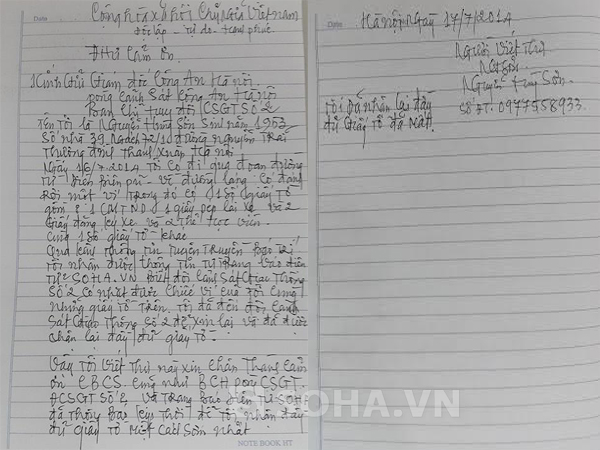 Date
Cộng hòa xã hội Chủ Nghĩa Việt nam
độc lập - Tự do - hạnh phúc
Thư Cảm ơn
Kính Gửi Giám đốc Công An Hà nội
phòng Cảnh Sát Công An Hà nội
Ban Chỉ huy đội CSGT SỐ 2
Tên Tôi là Nguyễn Hùng Sơn Sinh năm 1963
Số nhà 39 Ngách 72/10 đường nguyễn Trãi
Thượng đình Thanh Xuân Hà nội
Ngày 16/7.2014 Tôi có đi qua đoạn đường
Từ điện biên phủ - về đường láng. Có đánh
Rơi một ví Trong đó có 1 Số giấy Tờ
gồm 1 CMTND, 1 giấy phép lái xe và 2
Giấy đăng ký xe và 2 Thẻ
Cùng 1 Số giấy Tờ khác
Qua Thông Tin Tuyên Truyền
Tôi nhận được Thông Tin Từ Trang báo điện
Tử SOHA.VN đội Cảnh Sát Giao Thông
Số 2 Có nhặt được Chiếc ví của Tôi Cùng
những giấy Tờ Trên. Tôi đã đến đội Cảnh
Sát Giao Thông Số 2 để xin lại và đã được
nhận lại đầy đủ giấy Tờ.
Vậy Tôi viết Thư này xin Chân Thành Cảm
ơn CBCS cũng như BCH đội CSGT
SỐ 2 và Trang báo điện Tử SOHA
đã Thông báo kịp Thời để Tôi nhận đầy
đủ giấy Tờ Một Cách Sớm nhất
NOTE BOOK HT
Date
Hà nội Ngày 17/7/2014
Người viết Thư
Nguyễn Hùng Sơn
Số ĐT: 0977558933
Tôi đã nhận lại đầy
đủ Giấy Tờ đã Mất
SOHA.VN